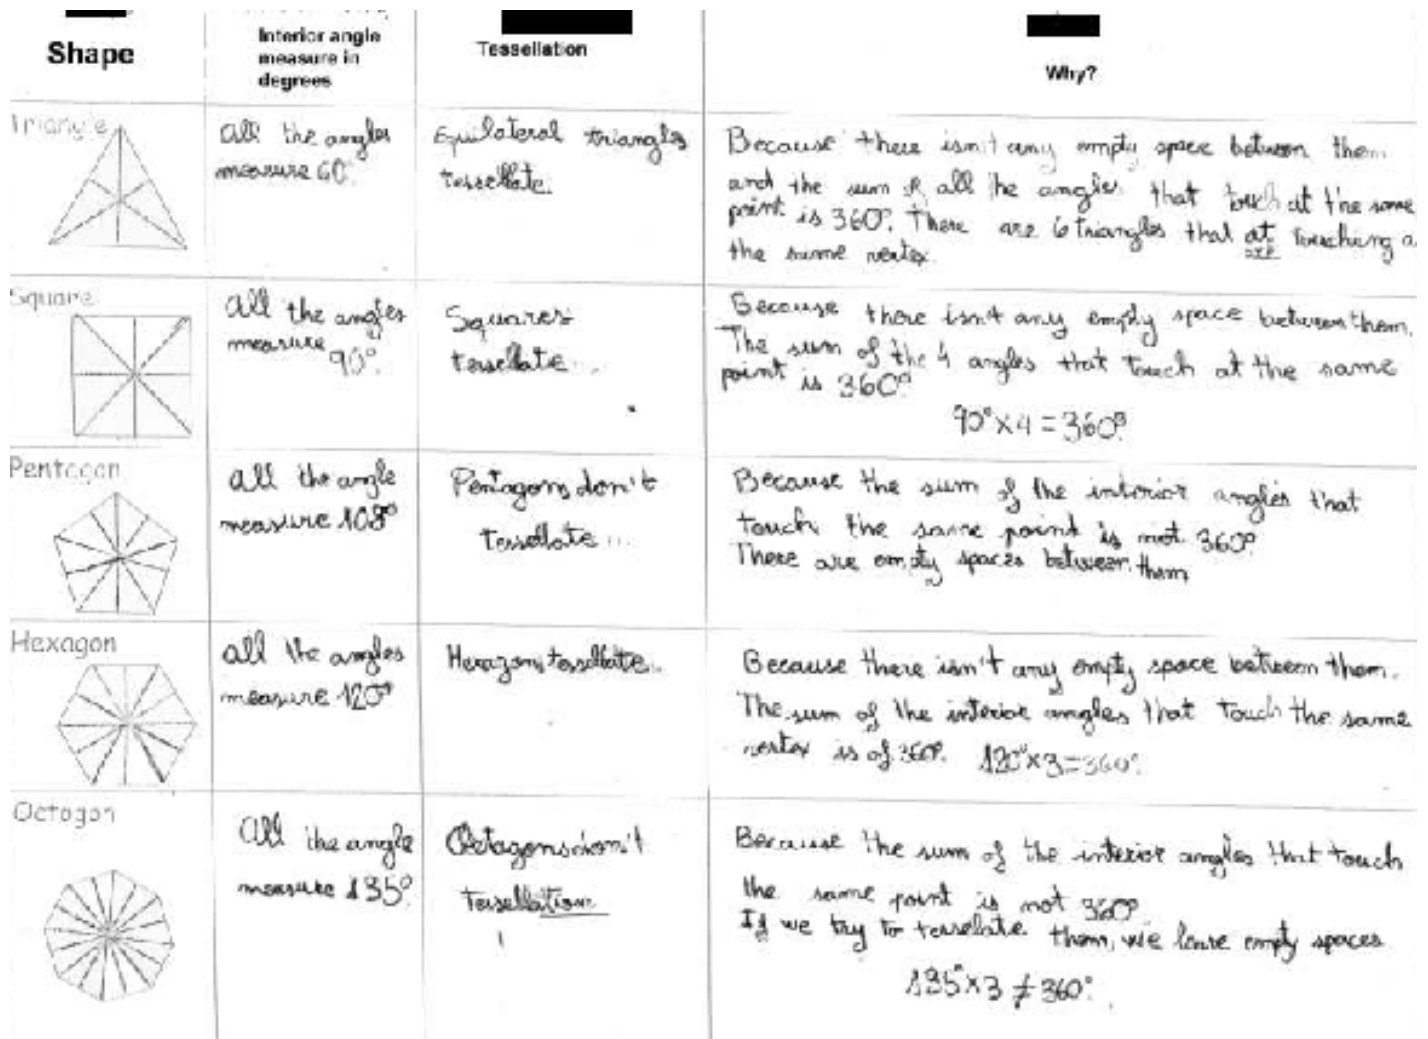 Shape
Interior angle
measure in
degrees
Tessellation
Why?
Triangle
All the angles
measure 60°.
Equilateral triangles
tessellate.
Because there isn't any empty space between them
and the sum of all the angles that touch at the same
point is 360°. There are 6 triangles that at touching a
are
the same vertex.
Square
All the angles
measure 90°.
Squares
tessellate...
Because there isn't any empty space between them.
The sum of the 4 angles that touch at the same
point is 360°
90° x 4 = 360°.
Pentagon
All the angle
measure 108°
Pentagons don't
tessellate...
Because the sum of the interior angles that
touch the same point is not 360°.
There are empty spaces between them
Hexagon
All the angles
measure 120°
Hexagons tessellate..
Because there isn't any empty space between them.
The sum of the interior angles that touch the same
vertex is of 360°. 120° x 3 = 360°.
Octogon
All the angle
measure 135°.
Octagons don't
tessellation
Because the sum of the interior angles that touch
the same point is not 360°
If we try to tesselate them, we leave empty spaces
135° x 3 ≠ 360°.